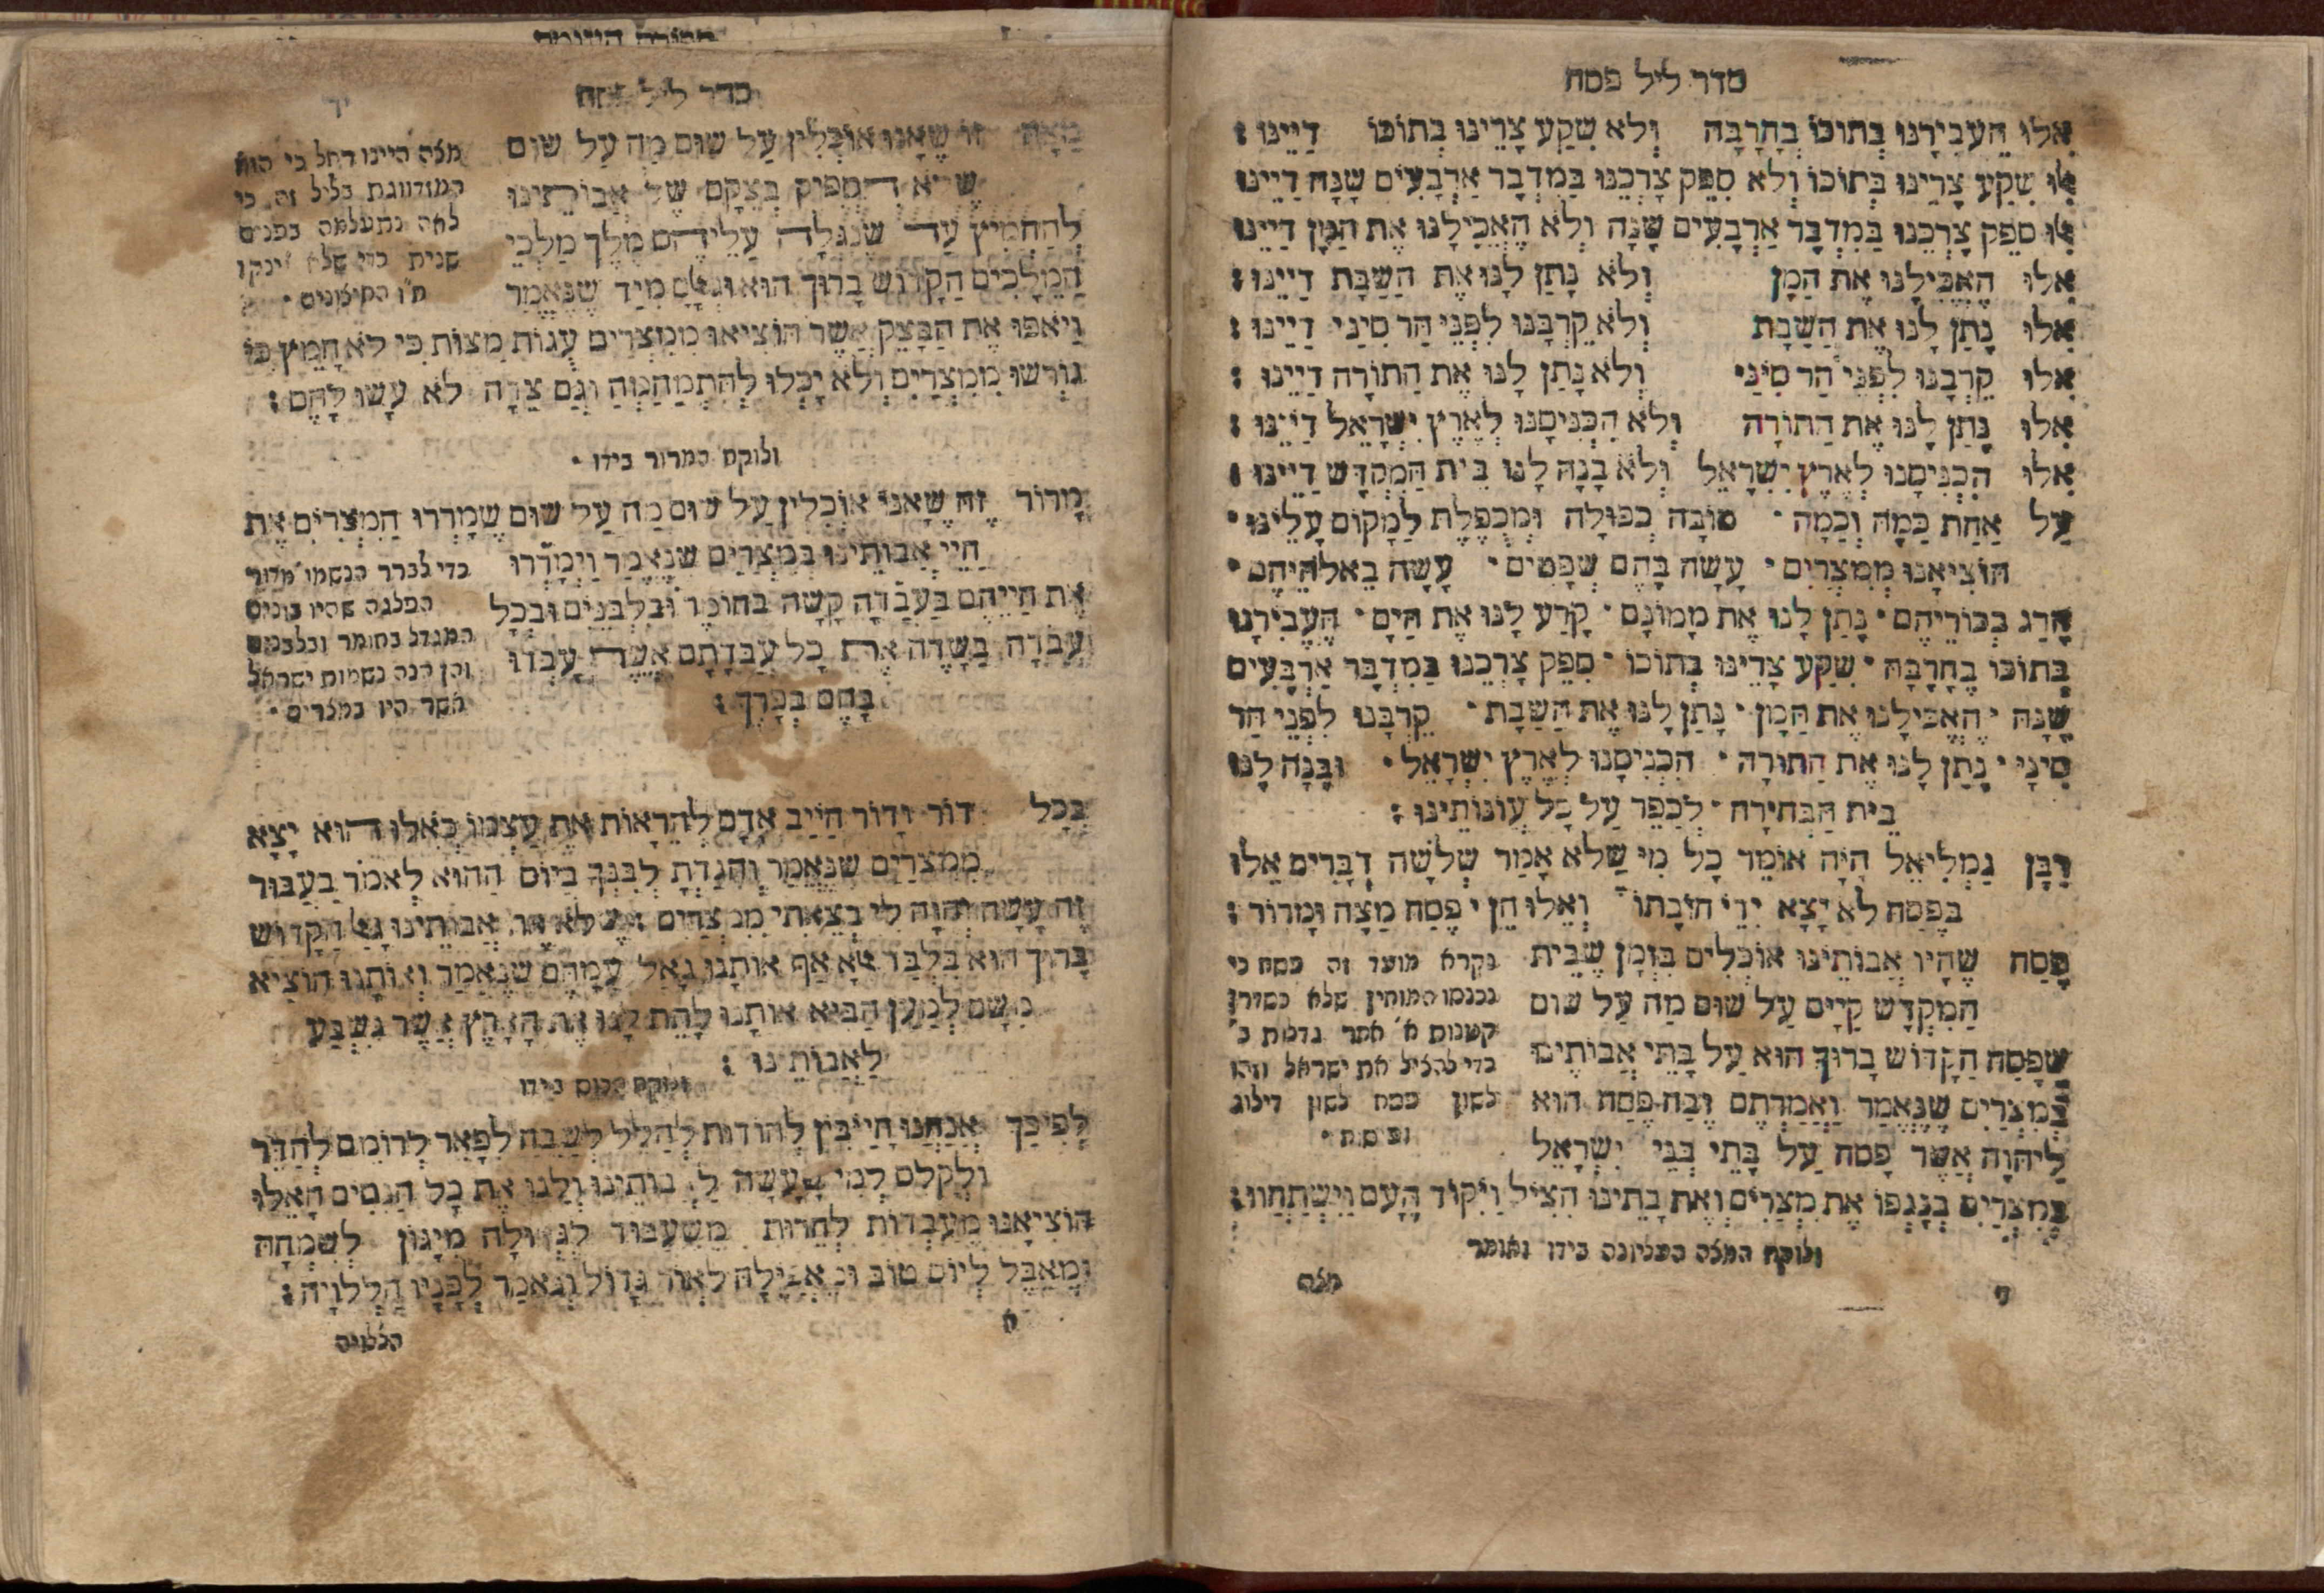 סדר ליל פסח
אִלוּ הֶעֱבִירָנוּ בְּתוֹכוֹ בְּחָרָבָה וְלֹא שִׁקַע צָרֵינוּ בְּתוֹכוֹ דַיֵינוּ :
אִלוּ שִׁקַע צָרֵינוּ בְּתוֹכוֹ וְלֹא סִפֵּק צָרְכֵנוּ בַּמִדְבָּר אַרְבָּעִים שָׁנָה דַיֵינוּ
אִלוּ סִפֵק צָרְכֵנוּ בַּמִדְבָּר אַרְבָעִים שָׁנָה וְלֹא הֶאֱכִילָנוּ אֶת הַמָּן דַיֵינוּ
אִלוּ הֶאֱכִילָנוּ אֶת הַמָן וְלֹא נָתַן לָנוּ אֶת הַשַׁבָּת דַיֵינוּ :
אִלוּ נָתַן לָנוּ אֶת הַשַׁבָת וְלֹא קֵרְבָנוּ לִפְנֵי הַר סִינַי דַיֵינוּ :
אִלוּ קֵרְבָנוּ לִפְנֵי הַר סִינַי וְלֹא נָתַן לָנוּ אֶת הַתוֹרָה דַיֵינוּ :
אִלוּ נָתַן לָנוּ אֶת הַתוֹרָה וְלֹא הִכְנִיסָנוּ לְאֶרֶץ יִשְׂרָאֵל דַיֵינוּ :
אִלוּ הִכְנִיסָנוּ לְאֶרֶץ יִשְׂרָאֵל וְלֹא בָנָה לָנוּ בֵית הַמִקְדָשׁ דַיֵינוּ :
עַל אַחַת כַּמָה וְכַמָה · טוֹבָה כְפוּלָה וּמְכֻפֶלֶת לַמָקוֹם עָלֵינוּ ·
הוֹצִיאָנוּ מִמִצְרַיִם · עָשָׂה בָהֶם שְׁפָטִים · עָשָׂה בֵאלֹהֵיהֶם ·
הָרַג בְּכוֹרֵיהֶם · נָתַן לָנוּ אֶת מָמוֹנָם · קָרַע לָנוּ אֶת הַיָם · הֶעֱבִירָנוּ
בְּתוֹכוֹ בֶּחָרָבָה · שִׁקַע צָרֵינוּ בְּתוֹכוֹ · סִפֵק צָרְכֵנוּ בַּמִדְבָּר אַרְבָּעִים
שָׁנָה · הֶאֱכִילָנוּ אֶת הַמָן · נָתַן לָנוּ אֶת הַשַׁבָת · קֵרְבָנוּ לִפְנֵי הַר
סִינַי · נָתַן לָנוּ אֶת הַתוֹרָה · הִכְנִיסָנוּ לְאֶרֶץ יִשְׂרָאֵל · וּבָנָה לָנוּ
בֵית הַבְּחִירָה · לְכַפֵּר עַל כָל עֲוֹנוֹתֵינוּ :
רַבָּן גַמְלִיאֵל הָיָה אוֹמֵר כָל מִי שֶׁלֹא אָמַר שְׁלֹשָׁה דְבָרִים אֵלוּ
בְּפֶסַח לֹא יָצָא יְדֵי חוֹבָתוֹ וְאֵלוּ הֵן פֶסַח מַצָה וּמָרוֹר :
פֶּסַח שֶׁהָיוּ אֲבוֹתֵינוּ אוֹכְלִים בִּזְמַן שֶׁבֵּית
הַמִקְדָשׁ קַיָים עַל שׁוּם מַה עַל שׁוּם
שֶׁפָסַח הַקָדוֹשׁ בָּרוּךְ הוּא עַל בָּתֵי אֲבוֹתֵינוּ
בְּמִצְרַיִם שֶׁנֶאֱמַר וַאֲמַרְתֶם זֶבַח פֶּסַח הוּא
לַיהוָֹה אֲשֶׁר פָסַח עַל בָּתֵי בְּנֵי יִשְׂרָאֵל
בְּמִצְרַיִם בְּנָגְפּוֹ אֶת מִצְרַיִם וְאֶת בָתֵינוּ הִצִיל וַיִקוֹד הָעָם וַיִשְׁתַחֲווּ :
נקרא מועד זה פסח כי
נכנסו המוחין שלא כסדרן
קטנות א' אחר גדלות ב'
כדי להציל את ישראל וזהו
לשון פסח לשון דילוג
ופיסח ·
ולוקח המצה העליונה בידו ואומר
מצה
סדר ליל פסח
יד
מַצָה זוֹ שֶׁאָנוּ אוֹכְלִין עַל שׁוּם מַה עַל שׁוּם
שֶׁלֹא הִסְפִּיק בְּצֵקָם שֶׁל אֲבוֹתֵינוּ
לְהַחְמִיץ עַד שֶׁנִגְלָה עֲלֵיהֶם מֶלֶךְ מַלְכֵי
הַמְלָכִים הַקָדוֹשׁ בָּרוּךְ הוּא וּגְאָלָם מִיַד שֶׁנֶאֱמַר
וַיֹאפוּ אֶת הַבָּצֵק אֲשֶׁר הוֹצִיאוּ מִמִצְרַיִם עֻגוֹת מַצוֹת כִּי לֹא חָמֵץ כִּי
גוֹרְשׁוּ מִמִצְרַיִם וְלֹא יָכְלוּ לְהִתְמַהְמֵהַּ וְגַם צֵדָה לֹא עָשׂוּ לָהֶם :
מצה היינו רחל כי היא
המזדווגת בליל זה כי
לאה נתעלמה בפנים
שנית כדי שלא ינקו
ח"ו החיצונים ·
ולוקח המרור בידו ·
מָרוֹר זֶה שֶׁאָנוּ אוֹכְלִין עַל שׁוּם מַה עַל שׁוּם שֶׁמָרְרוּ הַמִצְרִיִם אֶת
חַיֵי אֲבוֹתֵינוּ בְּמִצְרַיִם שֶׁנֶאֱמַר וַיְמָרְרוּ
אֶת חַיֵיהֶם בַּעֲבֹדָה קָשָׁה בְּחוֹמֶר וּבִלְבֵנִים וּבְכָל
עֲבֹדָה בַּשָׂדֶה אֶת כָל עֲבֹדָתָם אֲשֶׁר עָבְדוּ
בָּהֶם בְּפָרֶךְ :
כדי לברר הנשמות מדור
הפלגה שהיו בונים
המגדל בחומר ובלבנים
והן הנה נשמות ישראל
אשר היו במצרים ·
בְּכָל דוֹר וָדוֹר חַיָיב אָדָם לְהֵרָאוֹת אֶת עַצְמוֹ כְּאִלוּ הוּא יָצָא
מִמִצְרַיִם שֶׁנֶאֱמַר וְהִגַדְתָ לְבִנְךָ בַיוֹם הַהוּא לֵאמֹר בַעֲבוּר
זֶה עָשָׂה יְהוָֹה לִי בְּצֵאתִי מִמִצְרַיִם שֶׁלֹא אֶת אֲבוֹתֵינוּ גָאַל הַקָדוֹשׁ
בָּרוּךְ הוּא בִּלְבַד אֶלָא אַף אוֹתָנוּ גָאַל עִמָהֶם שֶׁנֶאֱמַר וְאוֹתָנוּ הוֹצִיא
מִשָׁם לְמַעַן הָבִיא אוֹתָנוּ לָתֶת לָנוּ אֶת הָאָרֶץ אֲשֶׁר נִשְׁבַּע
לַאֲבוֹתֵינוּ :
ולוקח הכוס בידו
לְפִיכָךְ אֲנַחְנוּ חַיָיבִין לְהוֹדוֹת לְהַלֵל לְשַׁבֵּחַ לְפָאֵר לְרוֹמֵם לְהַדֵר
וּלְקַלֵס לְמִי שֶׁעָשָׂה לַאֲבוֹתֵינוּ וְלָנוּ אֶת כָל הַנִסִים הָאֵלוּ
הוֹצִיאָנוּ מֵעַבְדוּת לְחֵרוּת מִשִׁעְבּוּד לִגְאוּלָה מִיָגוֹן לְשִׂמְחָה
וּמֵאֵבֶל לְיוֹם טוֹב וּמֵאֲפֵילָה לְאוֹר גָדוֹל וְנֹאמַר לְפָנָיו הַלְלוּיָה :
הללויה